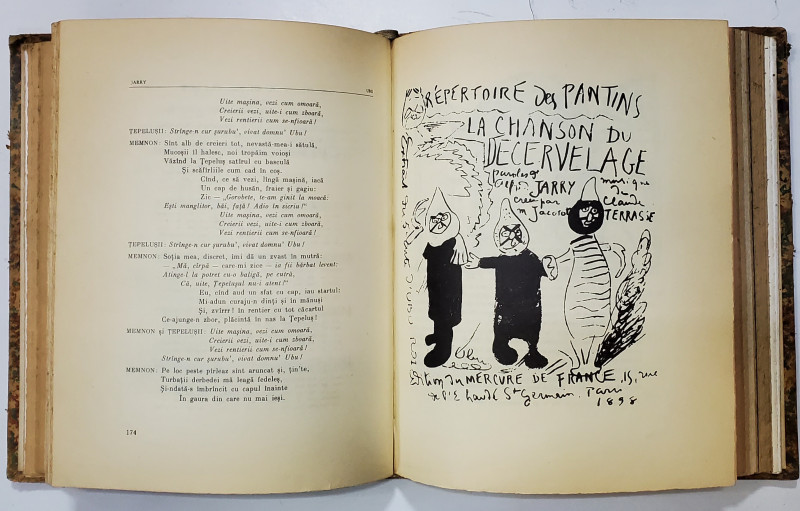 JARRY
UBU
Uite mașina, vezi cum omoară,
Creierii vezi, uite-i cum zboară,
Vezi rentierii cum se-nfioară!
ȚEPELUȘII: Strînge-n cur șurubu', vivat domnu' Ubu!
MEMNON: Sînt alb de creieri tot, nevastă-mea-i sătulă,
Mucoșii îl halesc, noi tropăim voioși
Văzînd la Țepeluș satîrul cu basculă
Și scăfîrliile cum cad în coș.
Cînd, ce să vezi, lîngă mașină, iacă
Un cap de husăn, fraier și gagiu:
Zic — „Gorobete, te-am ginit la moacă:
Ești manglitor, băi, față! Adio în sicriu!“
Uite mașina, vezi cum omoară,
Creierii vezi, uite-i cum zboară,
Vezi rentierii cum se-nfioară!
ȚEPELUȘII: Strînge-n cur șurubu', vivat domnu' Ubu!
MEMNON: Soția mea, discret, îmi dă un zvast în mutră:
— „Mă, cîrpă — care-mi zice — ie fii bărbat levent:
Atinge-l la potrei cu-o baligă, pe cutră,
Că, uite, Țepelușul nu-i atent!“
Eu, cînd aud un sfat cu cap, iau startul:
Mi-adun curaju-n dinți și în mănuși
Și, zvîrr! în rentier cu tot căcartul
Ce-ajunge-n zbor, plăcintă în nas la Țepeluș!
MEMNON și ȚEPELUȘII: Uite mașina, vezi cum omoară,
Creierii vezi, uite-i cum zboară,
Vezi rentierii cum se-nfioară!
Strînge-n cur șurubu', vivat domnu' Ubu!
MEMNON: Pe loc peste pîrleaz sînt aruncat și, țin'te,
Turbații derbedei mă leagă fedeleș,
Și-ndată-s îmbrîncit cu capul înainte
În gaura din care nu mai ieși.
174
RÉPERTOIRE des PANTINS
LA CHANSON DU
DECERVELAGE
paroles d'
Alfred JARRY
créé par
m Jacotot
musique
de
Claude
TERRASSE
Ubu
Edition du MERCURE DE FRANCE, 15, rue
de l'Echaudé St Germain. Paris
1898